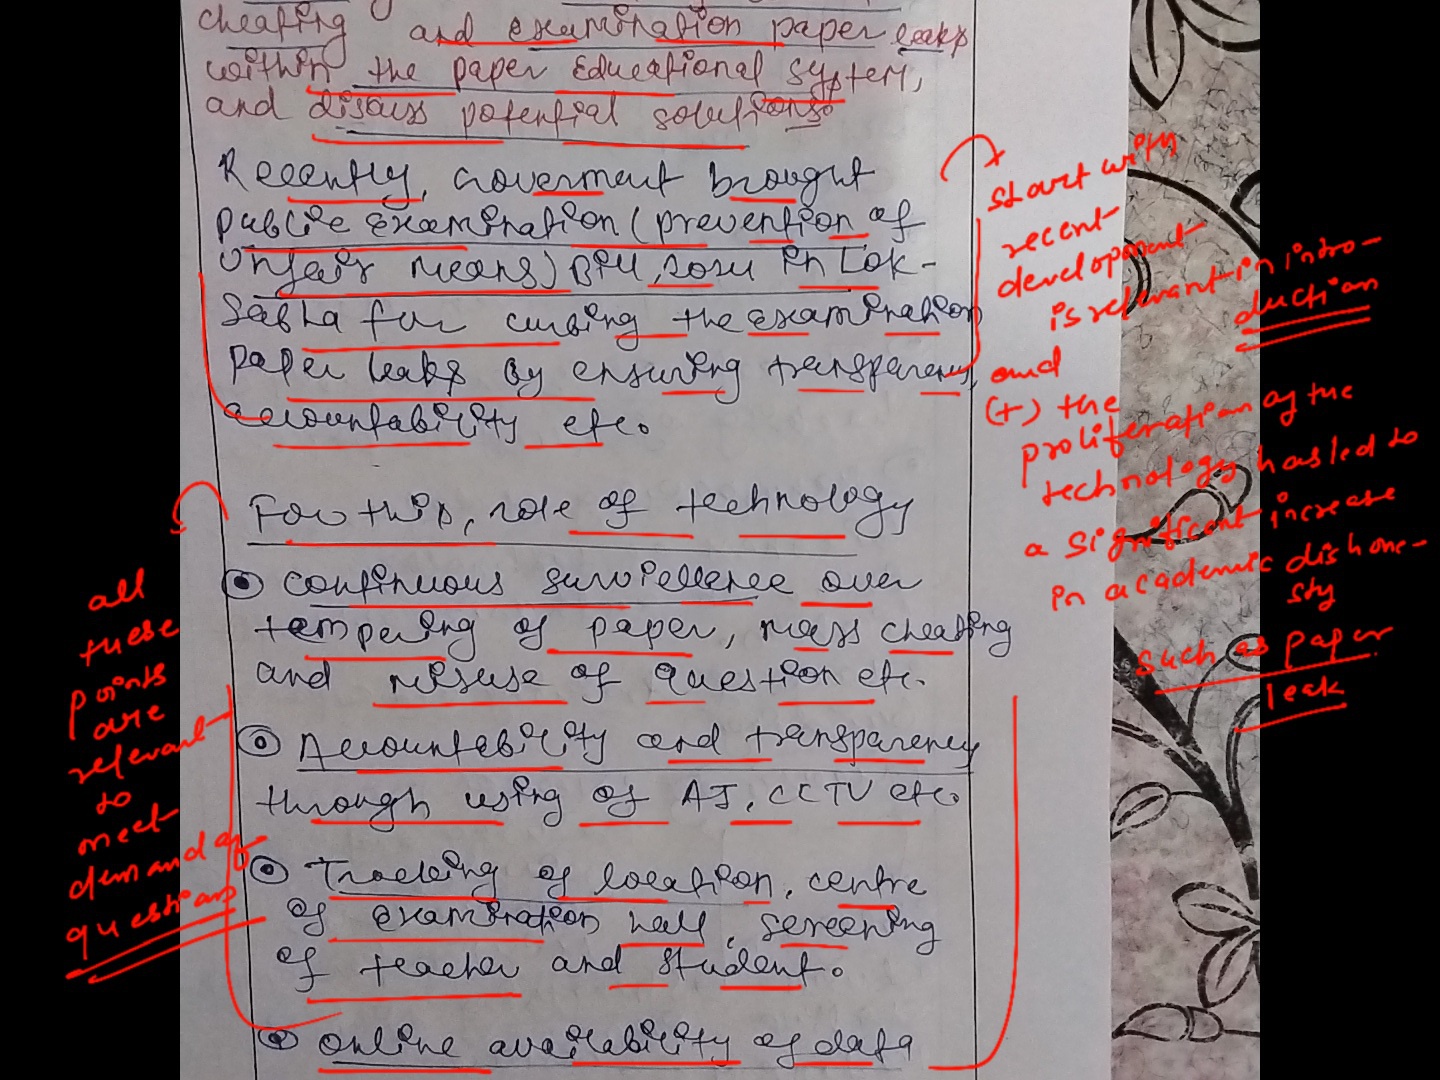 cheating and examination paper leaks
within the paper Educational system,
and discuss potential solutions.
Recently, Goverment brought
public examination (prevention of
Unfair means) Bill, 2024 in Lok-
Sabha for curbing the examination
paper leaks by ensuring transparency,
accountability etc.
For this, role of technology
continuous surviellence over
tempering of paper, mass cheating
and misuse of question etc.
Accountability and transparency
through using of AI, CCTV etc.
Tracking of location, centre
of examination hall, screening
of teacher and student.
online availability of data
start with
recent
development
is relevant in intro-
duction
and
(+) the
proliferation of the
technology has led to
a significant increase
in academic dishone-
sty
such as paper
leak
all
these
points
are
relevant
to
meet
demand of
questions